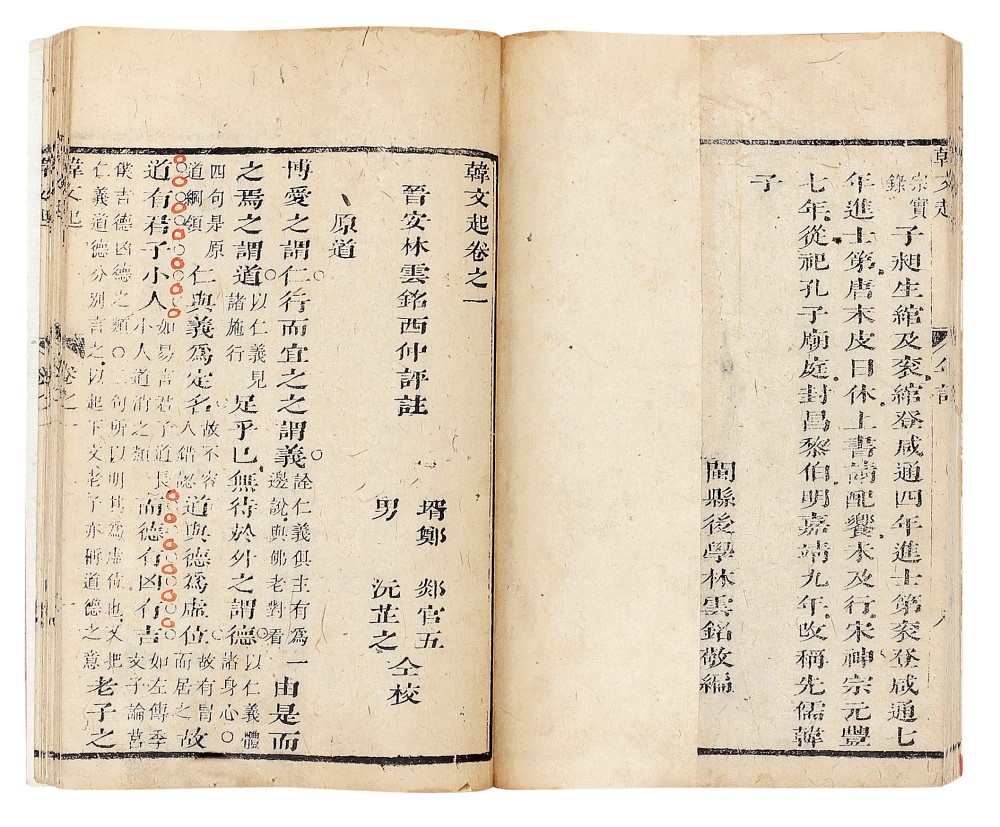 韓文起
年譜
宗實
錄
子昶生綰及袞綰登咸通四年進士第袞登咸通七
年進士第唐末皮日休上書請配饗不及行宋神宗元豐
七年從祀孔子廟庭封昌黎伯明嘉靖九年改稱先儒韓
子
閩縣後學林雲銘敬編
韓文起卷之一
晉安林雲銘西仲評註
壻鄭郯官五
男沅芷之
仝校
原道
博愛之謂仁行而宜之之謂義
詮仁義俱主有爲一
邊說與佛老對看
由是而
之焉之謂道
以仁義見
諸施行
足乎已無待於外之謂德
以仁義體
諸身心○
四句是原
道綱領
仁與義爲定名
故不容
人錯認
道與德爲虛位
故有冒
而居之
故
道有君子小人
如易言君子道長
小人道消之類
而德有凶有吉
如左傳季
文子論莒
僕吉德凶德之類○二句所以明其爲虛位也又把
仁義道德分別言之以起下文老子亦冊道德之意
老子之
韓文起
卷之一